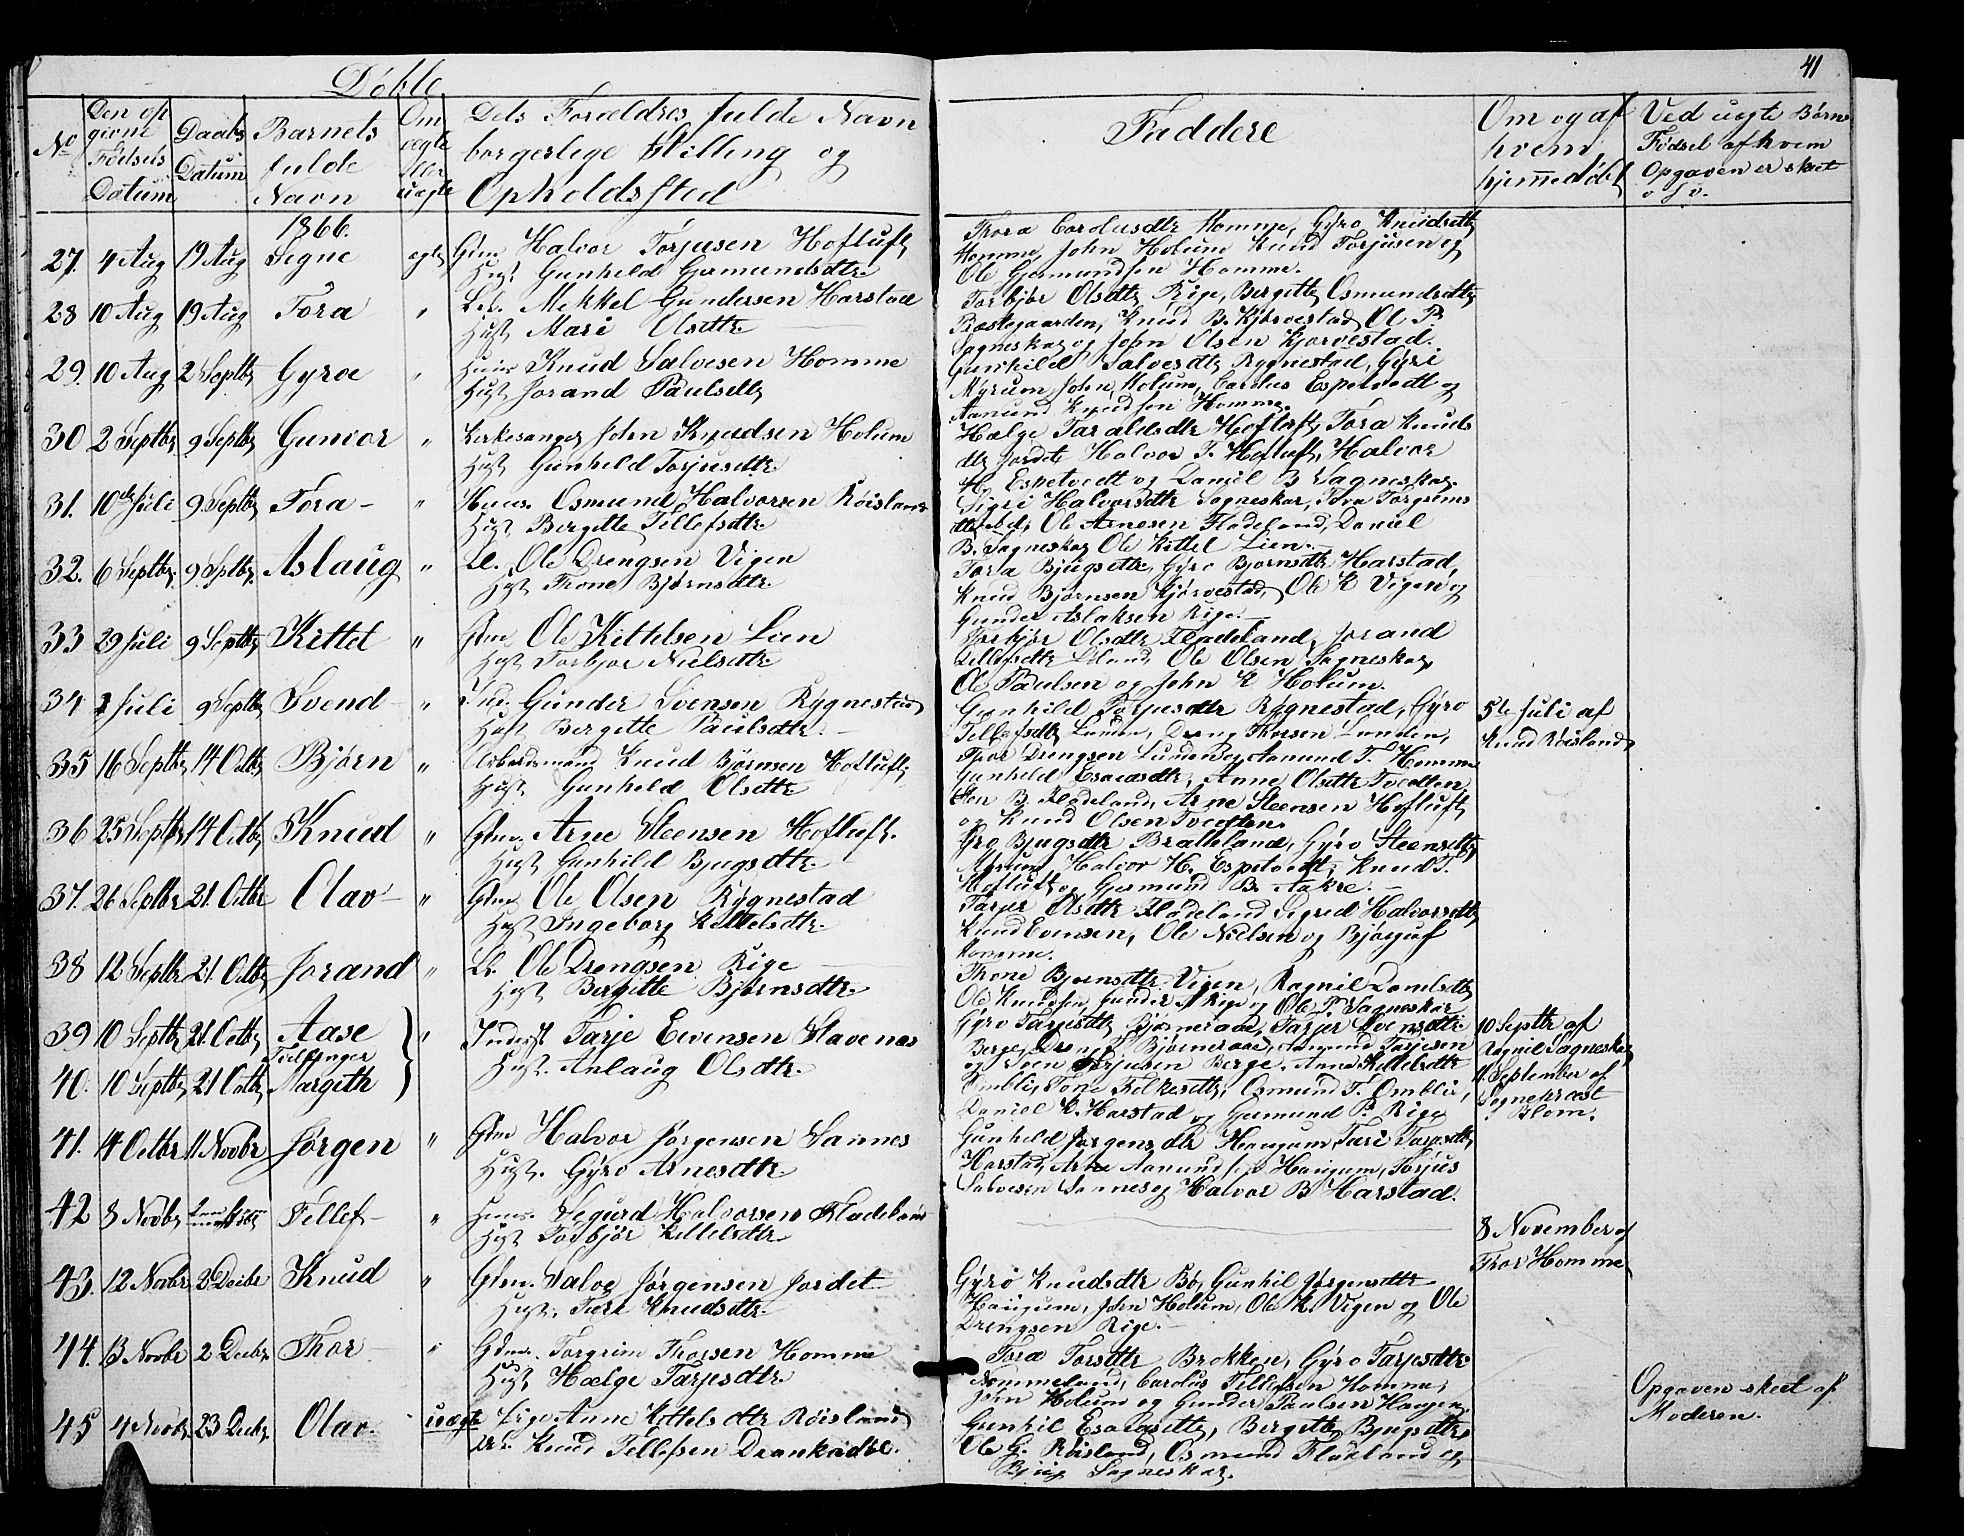 Døbte
41
No
Den op givne Fødsels Datum
Daabs Datum
Barnets fulde Navn
Om ægte eller uægte
Dets Forældres fulde Navn borgerlige Stilling og Opholdssted
Faddere
Om og af hvem hjemedøbt
Ved uægte Børns Fødsel af hvem Opgaven er skeet o. s. v.
1866.
27. 4 Aug 19 Aug Signe ægte Gdm. Halvor Torjusen Hofluft
Hust. Gunhild Germundsdtr.
Thora Carolusdtr Homme, Gyro Knudsdtr
Homme, John Holum Knud Torjusen og
Ole Germundsen Homme.
28 10 Aug 19 Aug Tora " Lei. Mikkel Gundersen Harstad
Hust Mari Olsdtr.
Torbjør Olsdtr Rige, Bergitte Osmundsdtr
Præstegaarden, Knud B. Kjørvestad, Ole P.
Sagneskar og John Olsen Kjørvestad.
29. 10 Aug 2 Septbr Gyroe " Huusm Knud Salvesen Homme
Hust Jorand Paulsdtr
Gunhild Salvesdtr Rygnestad, Gyri
Myrum, John Holum, Carolus Espetvedt og
Aamund Knudsen Homme.
30 2 Septbr 9 Septbr Gunvor " Kirkesanger John Knudsen Holum
Hust Gunhild Torjusdtr.
Hælge Taraldsdtr Hofluft, Tora Knuds
dtr Jordet, Halvor T. Hofluft, Halvor
H. Espetvedt og Daniel B Sagneskar.
31. 10de Juli 9 Septbr Tora - " Huus. Osmund Halvorsen Røisland
Hust Bergitte Tellefsdtr.
Sigri Halvorsdtr Sagneskar, Tora Torgrims
dtr Ole Arnesen Fladeland, Daniel
B. Sagneskar Ole Kittel Lien.
32. 6 Septbr. 9 Sptbr. Aslaug " Lei. Ole Drengsen Vigen
Hust Thone Bjørnsdtr.
Tora Bjugsdtr, Gyro Bjørnsdtr Harstad,
Knud Bjørnsen Kjørvestad, Ole K Vigen og
Gunder Aslaksen Rige.
33 29 Juli 9 Septbr Kittel " Gdm Ole Kittelsen Lien
Hust Torbjør Nielsdtr.
Torbjør Olsdtr Fladeland, Jorand
Tellefsdtr Ole Olsen Sagneskar,
Ole Paulsen og John K Holum.
34 2 Juli 9 Septbr Svend " Ind. Gunder Svensen Rygnestad
Hust Bergitte Paulsdtr.
Gunhild Torjusdtr Rygnestad, Gyro
Tellefsdtr Lunden, Dreng Thorsen Lunden,
Thor Drengsen Lunden og Aamund T. Homme
5te Juli af
Knud Røisland
35 16 Septbr 14 Octbr Bjørn " Arbeidsmand Knud Bjørnsen Hofluft
Hust. Gunhild Olsdtr
Gunhild Esaiasdtr, Anne Olsdtr Tvedten,
Sten B. Fladeland, Arne Steensen Hofluft
og Knud Olsen Tvedten.
36 25 Septbr 14 Octbr Knud " Gdm. Arne Steensen Hofluft.
Hust Gunhild Bjugsdtr.
Gro Bjugsdtr Bratteland, Gyro Steensdtr
Myrum, Halvor H. Espetvedt, Knud T.
Hofluft og Germund B. Aakre.
37. 26 Septbr 21. Octbr Olav " Gdm Ole Olsen Rygnestad
Hust Ingeborg Kittelsdtr.
Tarjer Olsdtr Fladeland Sigrid Halvorsdtr
Knud Evensen, Ole Nielsen og Bjørguf
Homme.
38 12 Septbr 21 Octbr Jorand " Lei. Ole Drengsen Rige
Hust Bergitte Bjørnsdtr.
Thone Bjørnsdtr Vigen, Ragnil Danilsdtr
Ole Knudsen, Gunder A Rige og Ole P. Sagneskar.
39 10 Septbr 21. Octbr Aase
Tvillinger
" Inderst Tarje Evensen Stavenes
Hust. Anlaug Olsdtr.
Gyro Tarjesdtr Bjørneraae, Tarjer Svensdtr.
Berge, Dreng T. Bjørneraae, Aamund Tarjesen
og Sven Torjusen Berge. Anne Kittelsdtr
10 Septbr af
Ragnil Sagneskar
40. 10 Septbr 21 Octbr Margith
Omblie, Tone Filkesdtr, Osmund T. Omblie,
Daniel K. Harstad og Germund P. Rige
11 September af
Sognepræst
Blom.
41. 4 Octbr 11 Novbr Jørgen " Gdm Halvor Jørgensen Sannes
Hust. Gyro Arnesdtr
Gunhild Jørgensdtr Haugum Tari Tarjesdtr
Harstad, Arne Aamundsen Haugum, Torjus
Salvesen Sannes og Halvor B Harstad.
42 8 Novbr Tellef - " Huus. Segurd Halvorsen Fladeland
Hust Torbjør Kittelsdtr
8 November af
Thor Homme
43. 12 Novbr 2 Decbr Knud " Gdm. Salve Jørgensen Jordet
Hust. Turi Knudsdtr.
Gyro Knudsdtr Bø, Gunhil Jørgensdtr
Haugum, John Holum, Ole K. Vigen og Ole
Drengsen Rige.
44. 13 Novbr 2 Decbr. Thor " Gdm. Torgrim Thorsen Homme
Hust Hælge Tarjesdtr.
Tora Torsdtr Brokken, Gyro Tarjesdtr
Nommeland, Carolus Tellefsen Homme,
John Holum og Gunder Paulsen Haugen.
45 4 Novbr 23 Decbr. Olav. uægte Pige Anne Kittelsdtr Røisland
Knud Tellefsen
Gunhil Esaiasdtr, Bergitte Bjugsdtr
Ole G. Røisland, Osmund Fladeland og
Bjug Sagneskar.
Opgaven skeet af
Moderen.